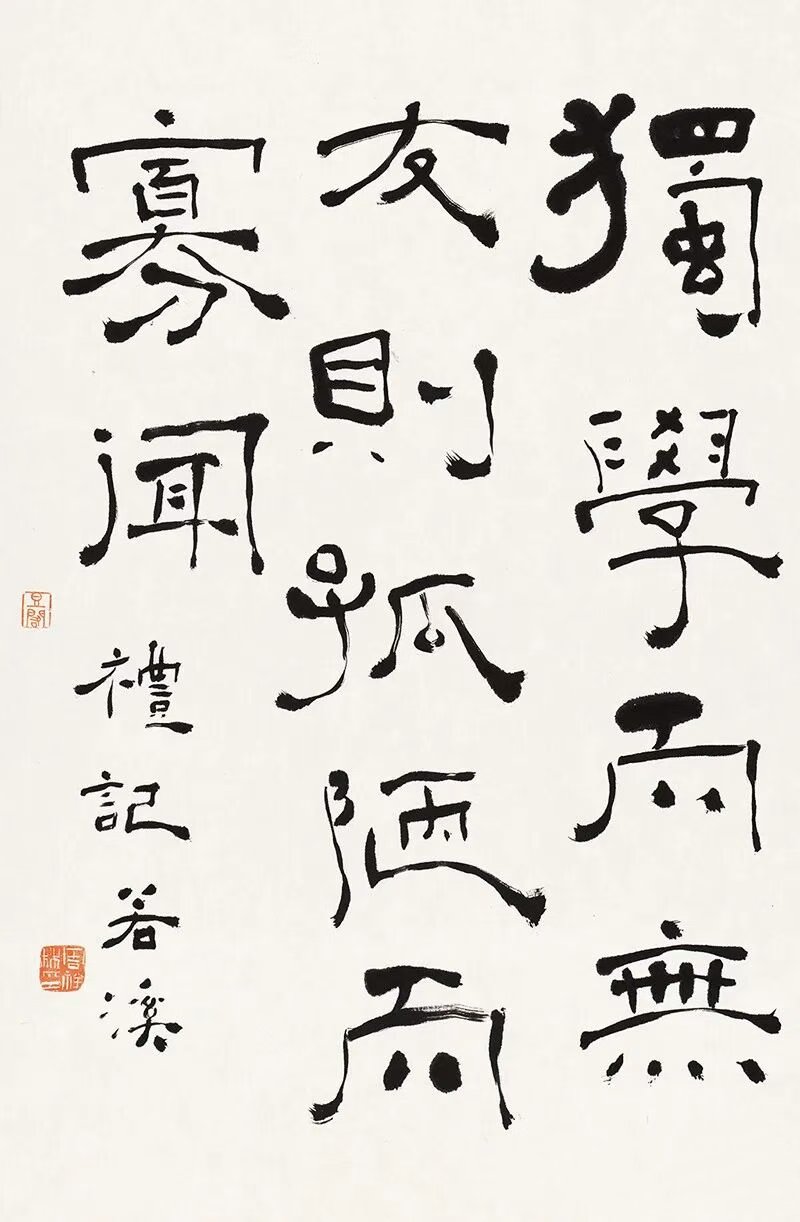 獨學而無
友則孤陋而
寡聞
禮記 若溪